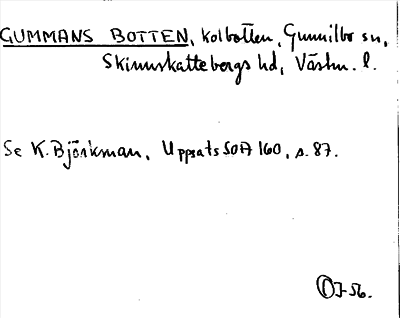 GUMMANS BOTTEN, Kolbotten, Gunnilbo sn,
Skinnskattebergs hd, Västm. l.
Se K. Björkman, Uppsats SOA 160, s. 87.
J-56.